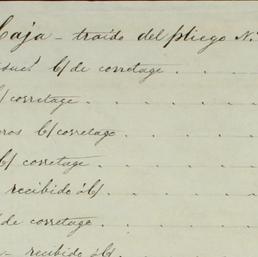 Caja - traido del pliego N.
b/ de corretage . . . .
b/ corretage . . . .
b/ corretage . . . .
b/ corretage . . . .
recibido á b/ . . . .
de corretage . . . .
- recibido á b/ . . . .